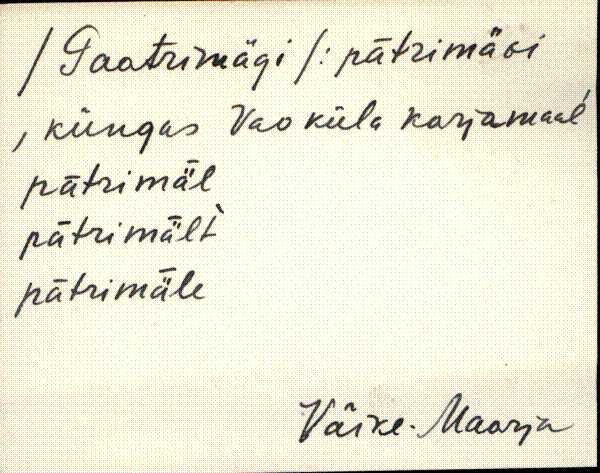 / Paatrimägi /: pātrimäǝi
, küngas Vao küla karjamaal,
pātrimǟl
pātrimǟlt̀
pātrimǟle
Väike-Maarja